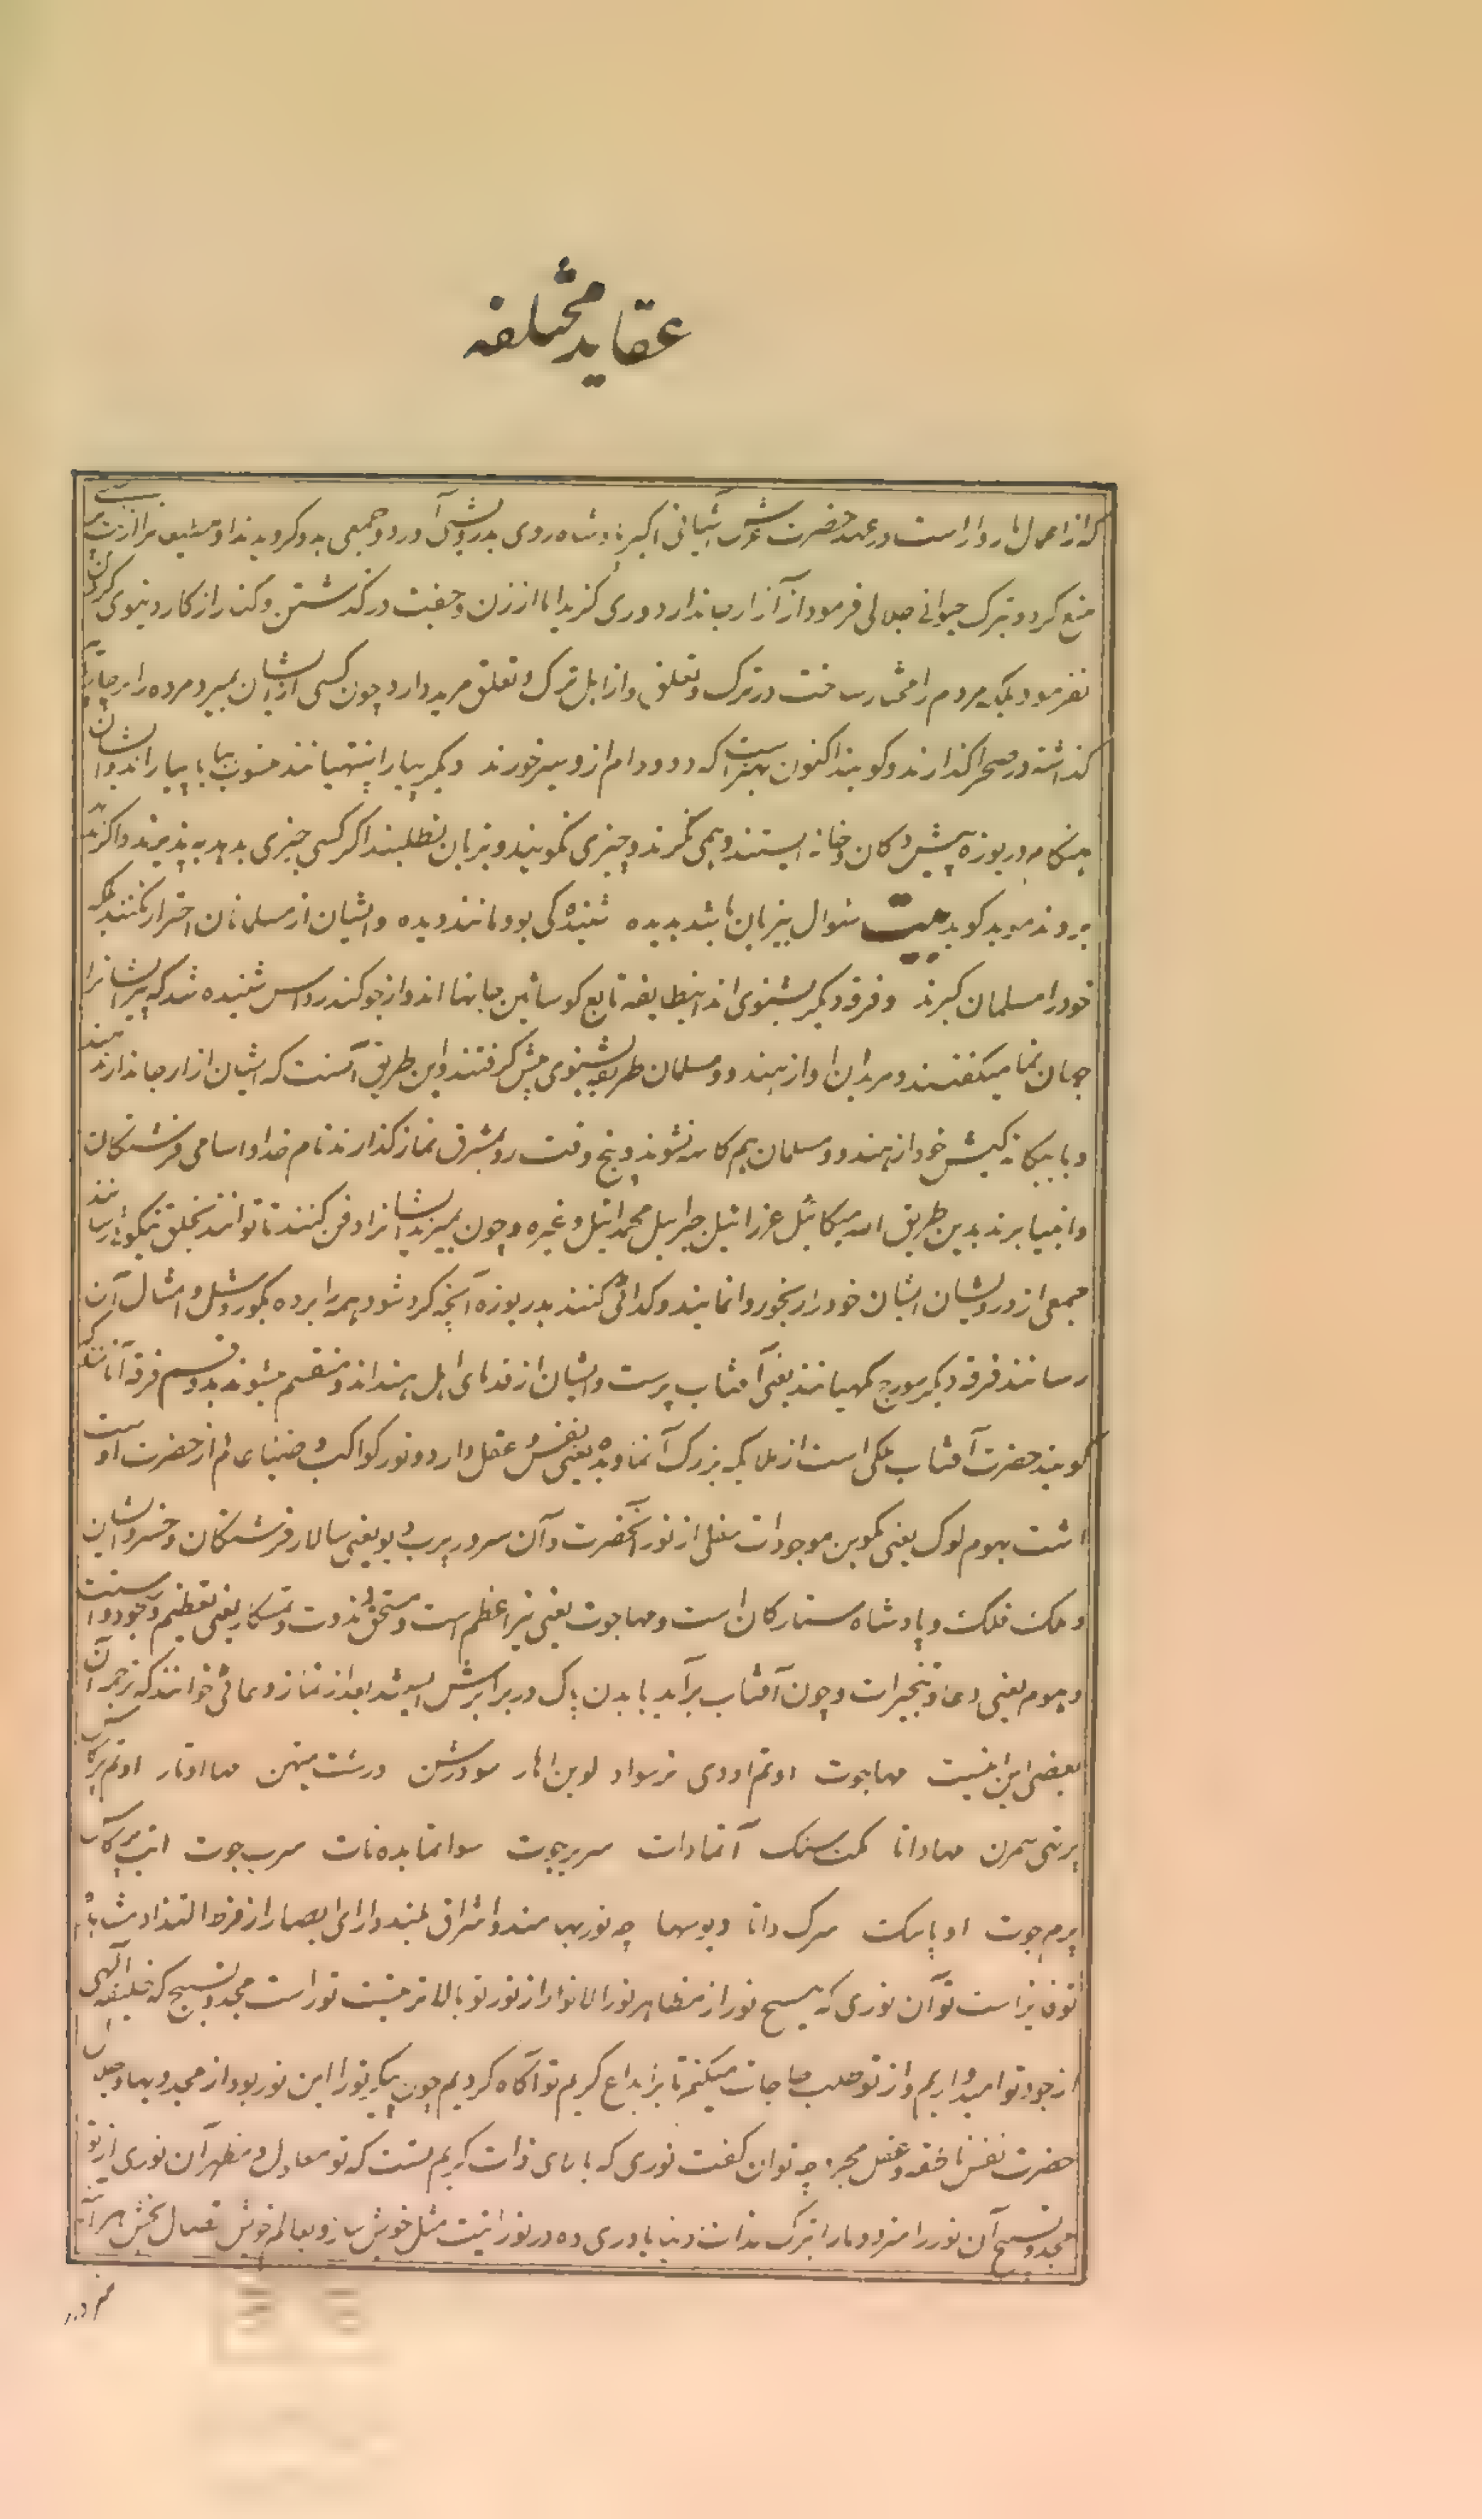 عقاید مختلفه
که از اعمال ناروا است در عهد حضرت عرش آشیانی اکبر بادشاه روی بدرویشی آورد و جمعی بدو کرویدند او متابعانرا از بت پرستی
منع کرد و بترک حیوانی جلالی فرمود از آزار جاندار دوری کزید اما از زن و جفت در کذشتن و کنار از کار دنیوی کرفتن
نفرمود بلکه مردم را مختار ساخت در ترک و تعلق و از اهل ترک و تعلق مرید دارد چون کسی از ایشان بمیرد مرده را بر چارپای
کذاشته در صحرا کذارند و کویند اکنون بهتر است که دد و دام ازو سیر خورند دیکر پیارا پنتهیانند منسوب بپیا پیارا اند و ایشان
هنکام دریوزه پیش دکان و خانه ایستند و همی نکرند و چیزی نکویند و بزبان نطلبند اکر کسی چیزی بدهد بپذیرند و اکر نه
بروند موبد کوید بیت سئوال بیزبان باشد پدیده شنیده کی بود مانند دیده و ایشان از مسلمانان احتراز نکنند بلکه
خود را مسلمان کیرند و فرقه دیکر بشنوی اند اینطایفه تابع کوسائین جانها اند و از جوکندر داس شنیده شد که پیر ایشانرا
جهان نما میکفتند و مریدان او از هندو و مسلمان طریقه بشنوی پیش کرفتند و این طریق آنست که ایشان ازار جاندار ندهند
و با بیکانه کیش خود از هندو و مسلمان هم کاسه نشوند و پنج وقت رو بمشرق نماز کذارند نام خدا و اسامی فرشتکان
و انبیا برند بدین طریق الله میکائیل عزرائیل جبرایل محمدائیل و غیره و چون بمیرند ایشانرا دفن کنند تا توانند بخلق نیکوئی رسانند
جمعی از درویشان ایشان خود را رنجور وانمایند و کدائی کنند بدریوزه آنچه کرد شود همه را برده بکور و شل و امثال آن
رسانند فرقه دیکر سورج مکهیانند یعنی آفتاب پرست و ایشان از قدمای اهل هند اند و منقسم میشوند بدو قسم فرقه آنانند که
کویند حضرت آفتاب ملکی است از ملایکه بزرک آتما و بده یعنی نفس و عقل دارد و نور کواکب و ضیای عالم از حضرت اوست
است بهوم لوک یعنی تکوین موجودات سفلی از نور آنحضرت و آن سرور پرب دیو یعنی سالار فرشتکان و خسرو ایشان
و ملک فلک و پادشاه ستارکان است و مهاجوت یعنی نیر اعظم است و مستحق دندوت و نمسکار یعنی تعظیم و سجود است
و هوم یعنی دعا و تبخیرات و چون آفتاب برآید با بدن پاک در برابرش ایستد بعد از نماز دعائی خوانند که ترجمه آن
بعضی این نیست مهاجوت اوتم اودی سودرشن درشت مهااوتار اوتم پرکاش
پرتمی سمرن مهادانا آتمادات سربرجوت سوا نمابده نات سرب جوت انت پرکاش
پرم جوت اوپاسکت سرک داتا دیوسها چه نور بهره مند و اشراق بلند دارای ابصار از فرط التذاذ مشاهده
توفایز است تو آن نوری که هیچ نور از مظاهر نور الانوار از نور تو بالاتر نیست تو راست مجد و تسبیح که خلیفه الهی
از جود تو امیدواریم و از تو طلب حاجات میکنم تا بر ابداع کریم تو آکاه کردیم چون پیکر تو را این نور بود از مجد و بها و جلال
حضرت نفس ناطقه و عقل مجرده چه توان کفت نوری که بالای ذات کریم تست که تو معلول و مظهر آن نوری از تو
مجد و تسبیح آن نور را سزد و مارا بترک لذات دنیا یاوری ده در نورانیت مثل خویش ساز و بعالم خویش اتصال بخش هر آینه